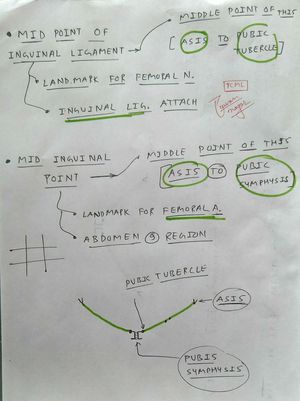 MIDDLE POINT OF THIS
• MID POINT OF INGUINAL LIGAMENT
[ASIS TO PUBIC TUBERCLE]
LANDMARK FOR FEMORAL N.
INGUINAL LIG. ATTACH
MIDDLE POINT OF THIS
• MID INGUINAL POINT
[ASIS TO PUBIC SYMPHYSIS]
LANDMARK FOR FEMORAL A.
ABDOMEN 9 REGION
PUBIC TUBERCLE
ASIS
PUBIS
SYMPHYSIS